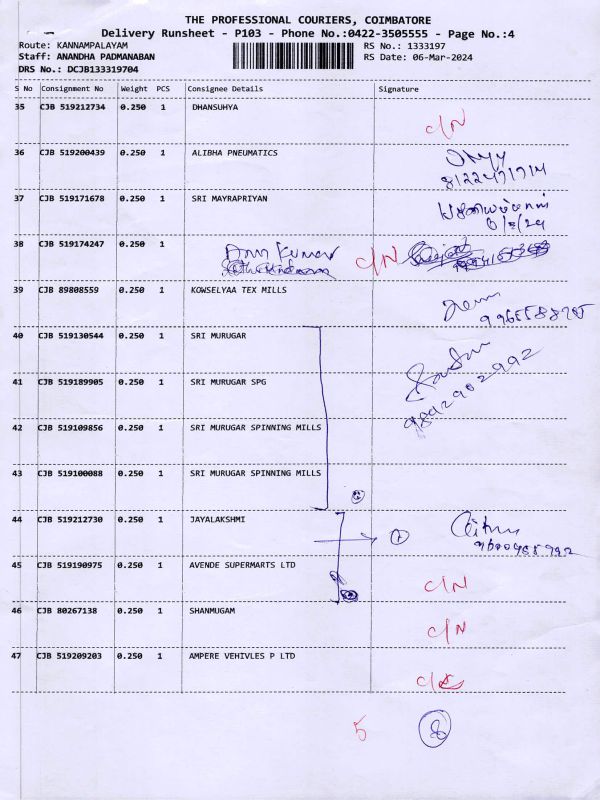 THE PROFESSIONAL COURIERS, COIMBATORE
Delivery Runsheet - P103 - Phone No.:0422-3505555 - Page No.:4
Route: KANNAMPALAYAM RS No.: 1333197
Staff: ANANDHA PADMANABAN RS Date: 06-Mar-2024
DRS No.: DCJB133319704
S No Consignment No Weight PCS Consignee Details Signature
35 CJB 519212734 0.250 1 DHANSUHYA
C/N
36 CJB 519200439 0.250 1 ALIBHA PNEUMATICS
37 CJB 519171678 0.250 1 SRI MAYRAPRIYAN
38 CJB 519174247 0.250 1
Arun Kumar C/N
39 CJB 89808559 0.250 1 KOWSELYAA TEX MILLS
40 CJB 519130544 0.250 1 SRI MURUGAR
41 CJB 519189905 0.250 1 SRI MURUGAR SPG
9842902992
42 CJB 519109856 0.250 1 SRI MURUGAR SPINNING MILLS
43 CJB 519100088 0.250 1 SRI MURUGAR SPINNING MILLS
44 CJB 519212730 0.250 1 JAYALAKSHMI
45 CJB 519190975 0.250 1 AVENDE SUPERMARTS LTD
C/N
46 CJB 80267138 0.250 1 SHANMUGAM
C/N
47 CJB 519209203 0.250 1 AMPERE VEHIVLES P LTD
5 8